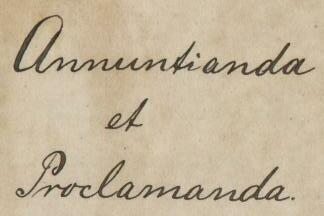 Annuntianda
et
Proclamanda.